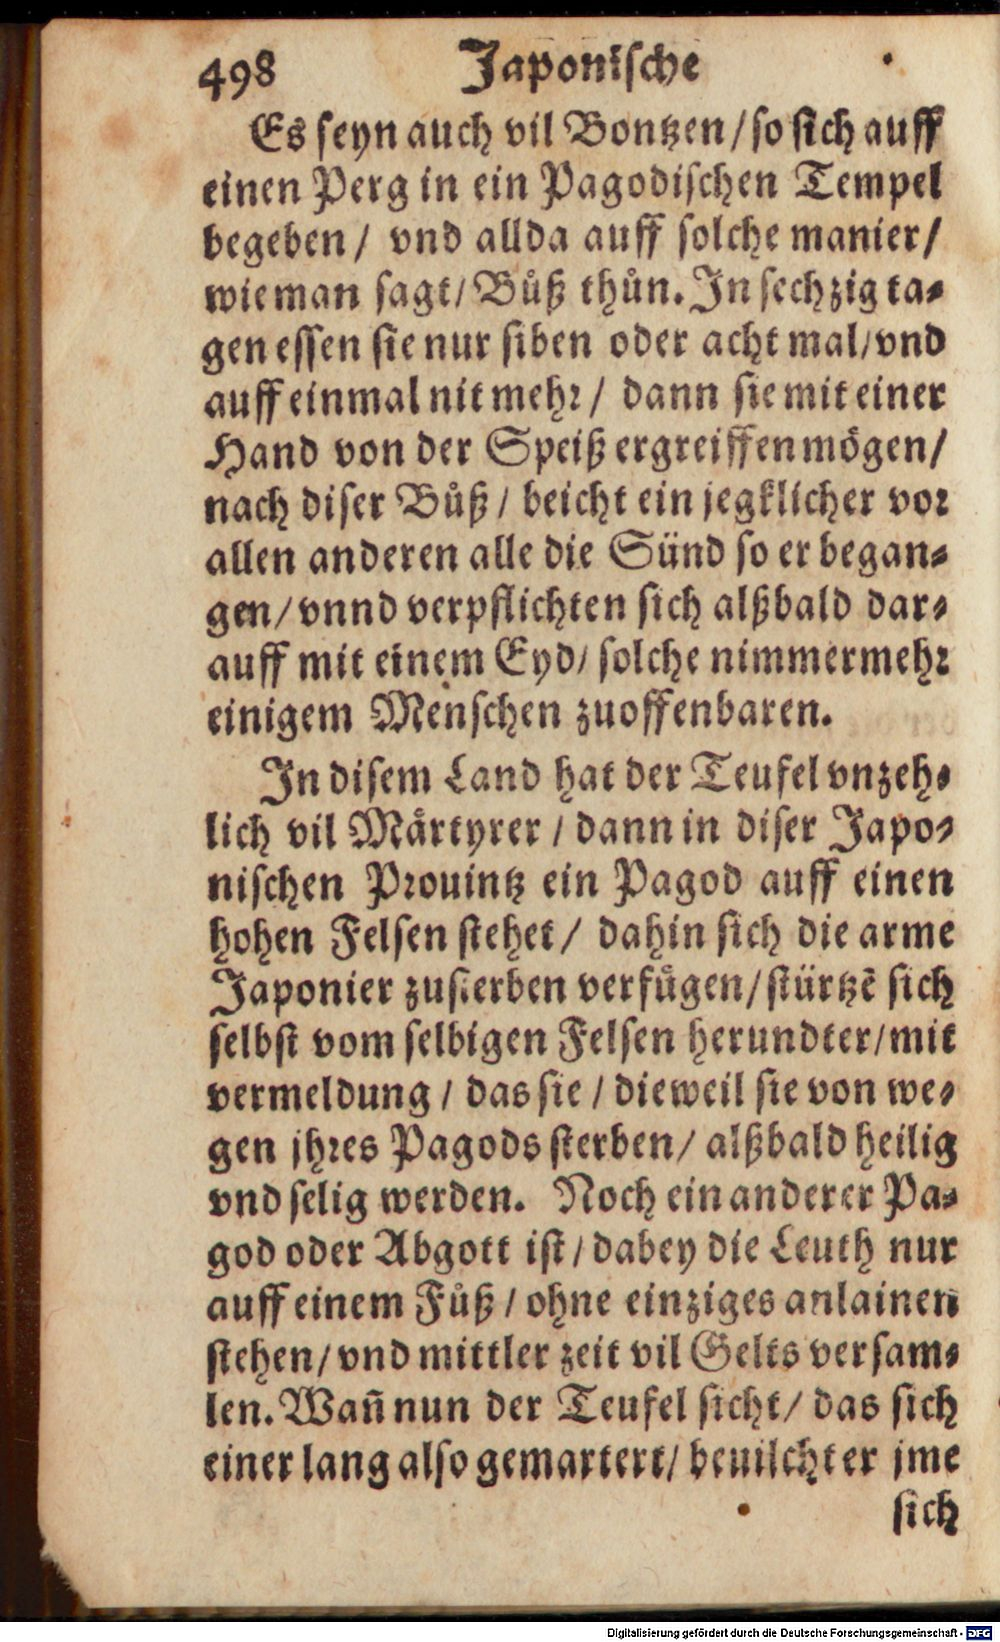 498 Japonische
Es seyn auch vil Bontzen/so sich auff
einen Perg in ein Pagodischen Tempel
begeben/ vnd allda auff solche manier/
wie man sagt/Bůß thůn. In sechzig ta⸗
gen essen sie nur siben oder acht mal/vnd
auff einmal nit mehr/ dann sie mit einer
Hand von der Speiß ergreiffen mögen/
nach diser Bůß/ beicht ein jegklicher vor
allen anderen alle die Sünd so er began⸗
gen/vnnd verpflichten sich alßbald dar⸗
auff mit einem Eyd/solche nimmermehr
einigem Menschen zuoffenbaren.
In disem Land hat der Teufel vnzeh⸗
lich vil Märtyrer/dann in diser Japo⸗
nischen Prouintz ein Pagod auff einen
hohen Felsen stehet/ dahin sich die arme
Japonier zusterben verfůgen/stürtzē sich
selbst vom selbigen Felsen herundter/mit
vermeldung/ das sie/dieweil sie von we⸗
gen jhres Pagods sterben/ alßbald heilig
vnd selig werden. Noch ein anderer Pa⸗
god oder Abgott ist/dabey die Leuth nur
auff einem Fůß/ohne einziges anlainen
stehen/vnd mittler zeit vil Gelts versam⸗
len. Wañ nun der Teufel sicht/ das sich
einer lang also gemartert/beuilcht er jme
sich
Digitalisierung gefördert durch die Deutsche Forschungsgemeinschaft - DFG